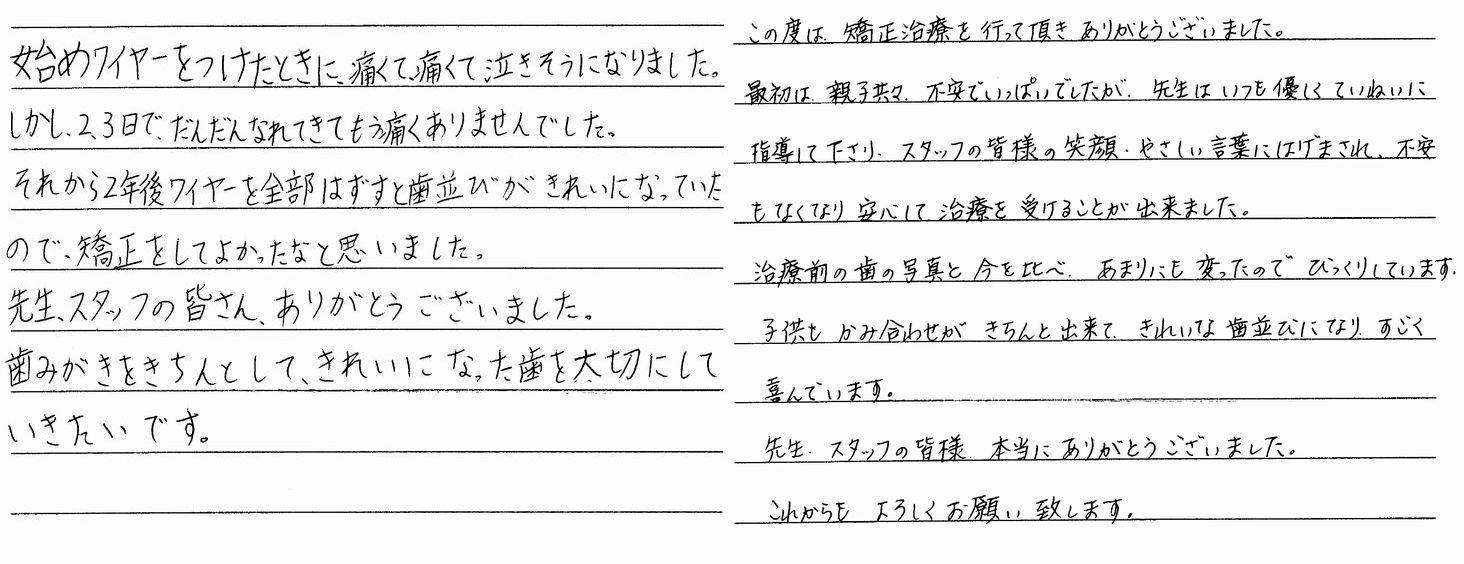 始めワイヤーをつけたときに、痛くて、痛くて泣きそうになりました。
しかし、2、3日で、だんだんなれてきてもう痛くありませんでした。
それから2年後ワイヤーを全部はずすと歯並びがきれいになっていた
ので、矯正をしてよかったなと思いました。
先生、スタッフの皆さん、ありがとうございました。
歯みがきをきちんとして、きれいになった歯を大切にして
いきたいです。
この度は、矯正治療を行って頂きありがとうございました。
最初は、親子共々、不安でいっぱいでしたが、先生はいつも優しくていねいに
指導して下さり、スタッフの皆様の笑顔、やさしい言葉にはげまされ、不安
もなくなり安心して治療を受けることが出来ました。
治療前の歯の写真と今を比べ、あまりにも変ったのでびっくりしています。
子供もかみ合わせがきちんと出来て、きれいな歯並びになり、すごく
喜んでいます。
先生、スタッフの皆様、本当にありがとうございました。
これからもよろしくお願い致します。